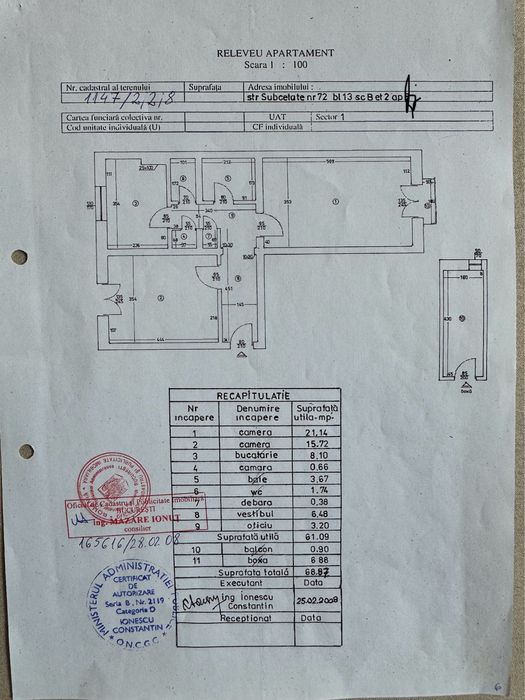 RELEVEU APARTAMENT
Scara 1 : 100
Nr. cadastral al terenului
Suprafața
Adresa imobilului :
1147/2;2;8
str Subcetate nr 72 bl 13 sc B et 2 ap
Cartea funciară colectiva nr.
UAT
Sector 1
Cod unitate individuală (U)
CF individuală
RECAPITULATIE
Nr incapere
Denumire incapere
Suprafață utila-mp-
1 camera 21,14
2 camera 15.72
3 bucatărie 8,10
4 camara 0.66
5 baie 3,67
6 wc 1.74
7 debara 0.38
8 vestibul 6.48
9 oficiu 3.20
Suprafată utilă 61.09
10 balcon 0.90
11 boxa 6.88
Suprafata totală 68.87
Executant Data
ing Ionescu Constantin 25.02.2008
Receptionat Data
Oficiul de Cadastru si Publicitate Imobiliara
BUCURESTI
Ing. MAZARE IONUT
consilier
165616/28.02.08
MINISTERUL ADMINISTRATIEI
CERTIFICAT
DE
AUTORIZARE
Seria B, Nr. 2119
Categoria D
IONESCU
CONSTANTIN
O.N.C.G.C.
6